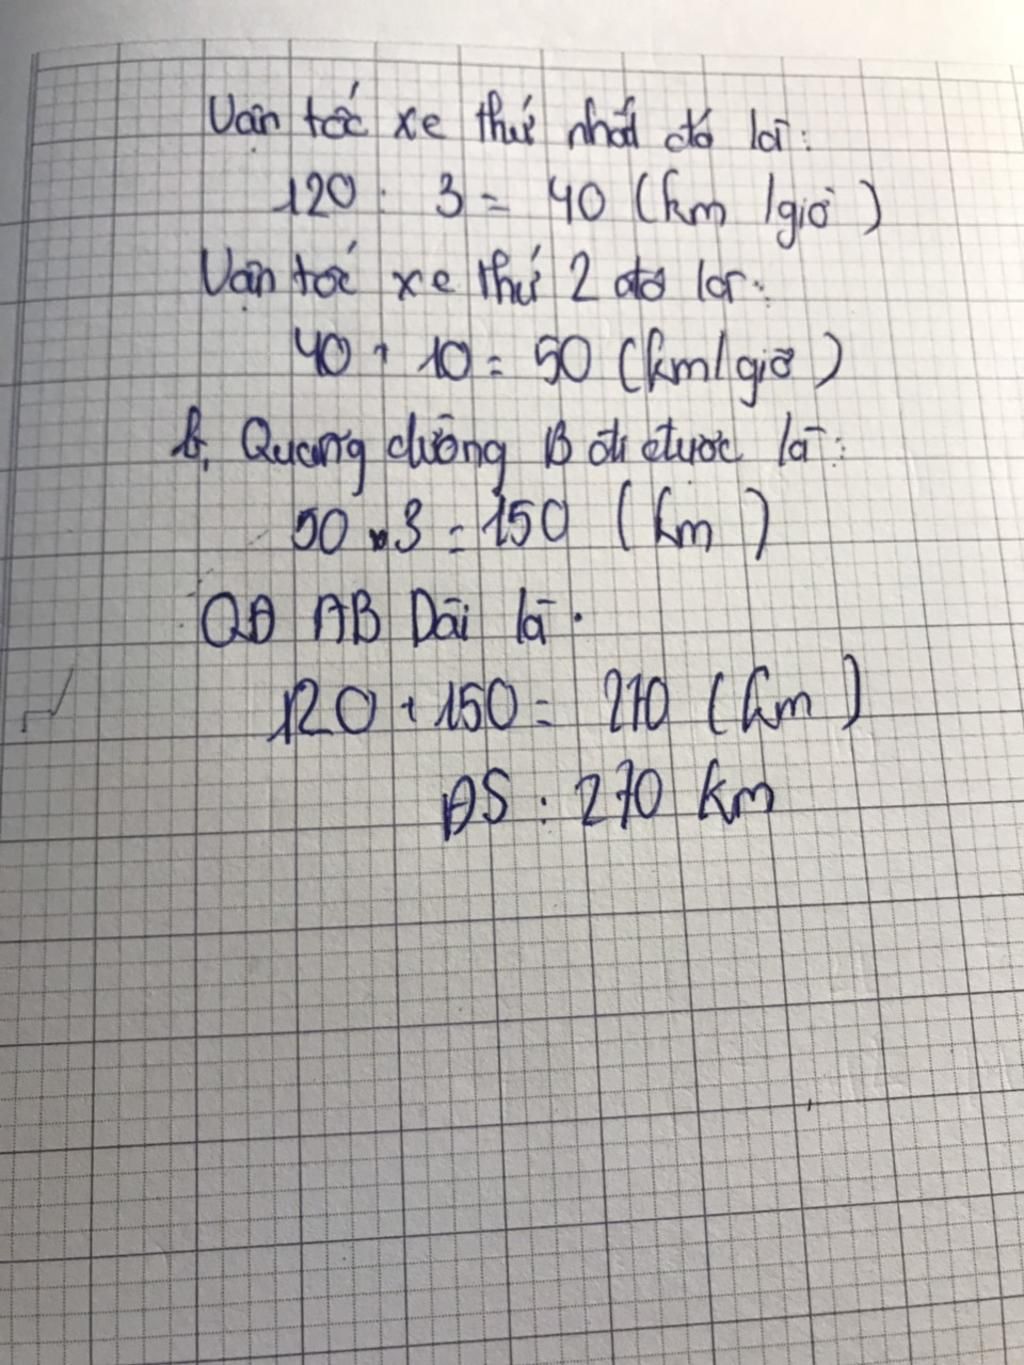 Vận tốc xe thứ nhất đó là:
120 : 3 = 40 (km/giờ)
Vận tốc xe thứ 2 đó là:
40 + 10 = 50 (km/giờ)
b, Quang đường B đi được là:
50 . 3 = 150 (km)
QĐ AB Dài là :
120 + 150 = 270 (km)
ĐS : 270 km